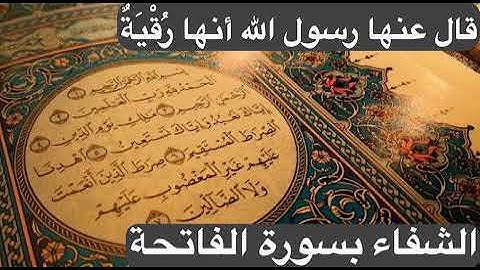 قال عنها رسول الله أنها رُقْيَةٌ
بِسْمِ اللَّهِ الرَّحْمَٰنِ الرَّحِيمِ
الْحَمْدُ لِلَّهِ رَبِّ الْعَٰلَمِينَ
الرَّحْمَٰنِ الرَّحِيمِ مَٰلِكِ يَوْمِ الدِّينِ
إِيَّاكَ نَعْبُدُ وَإِيَّاكَ نَسْتَعِينُ اهْدِنَا
الصِّرَٰطَ الْمُسْتَقِيمَ صِرَٰطَ الَّذِينَ أَنْعَمْتَ
عَلَيْهِمْ غَيْرِ الْمَغْضُوبِ عَلَيْهِمْ
وَلَا الضَّالِّينَ
الشفاء بسورة الفاتحة